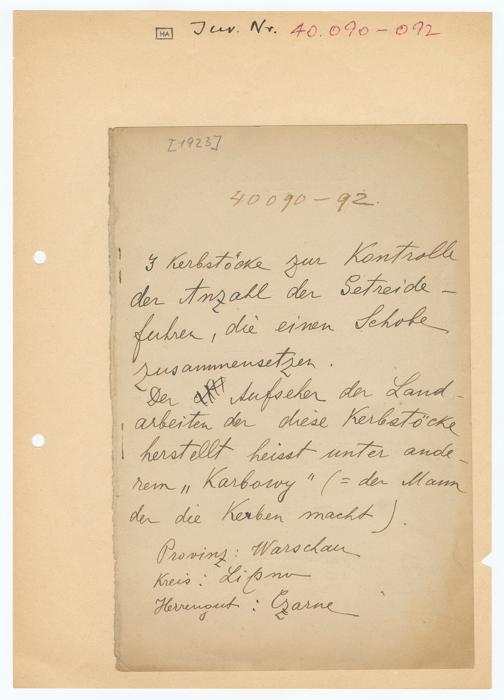 HA Inv. Nr. 40.090-092
[1923]
40090-92.
3 Kerbstöcke zur Kontrolle
der Anzahl der Getreide-
fuhren, die einen Schobe
zusammensetzen.
Der Aufseher der Land-
arbeiten der diese Kerbstöcke
herstellt heisst unter ande-
rem „Karbowy" (= der Mann
der die Kerben macht).
Provinz: Warschau
Kreis: Lipno
Herrengut: Czarne